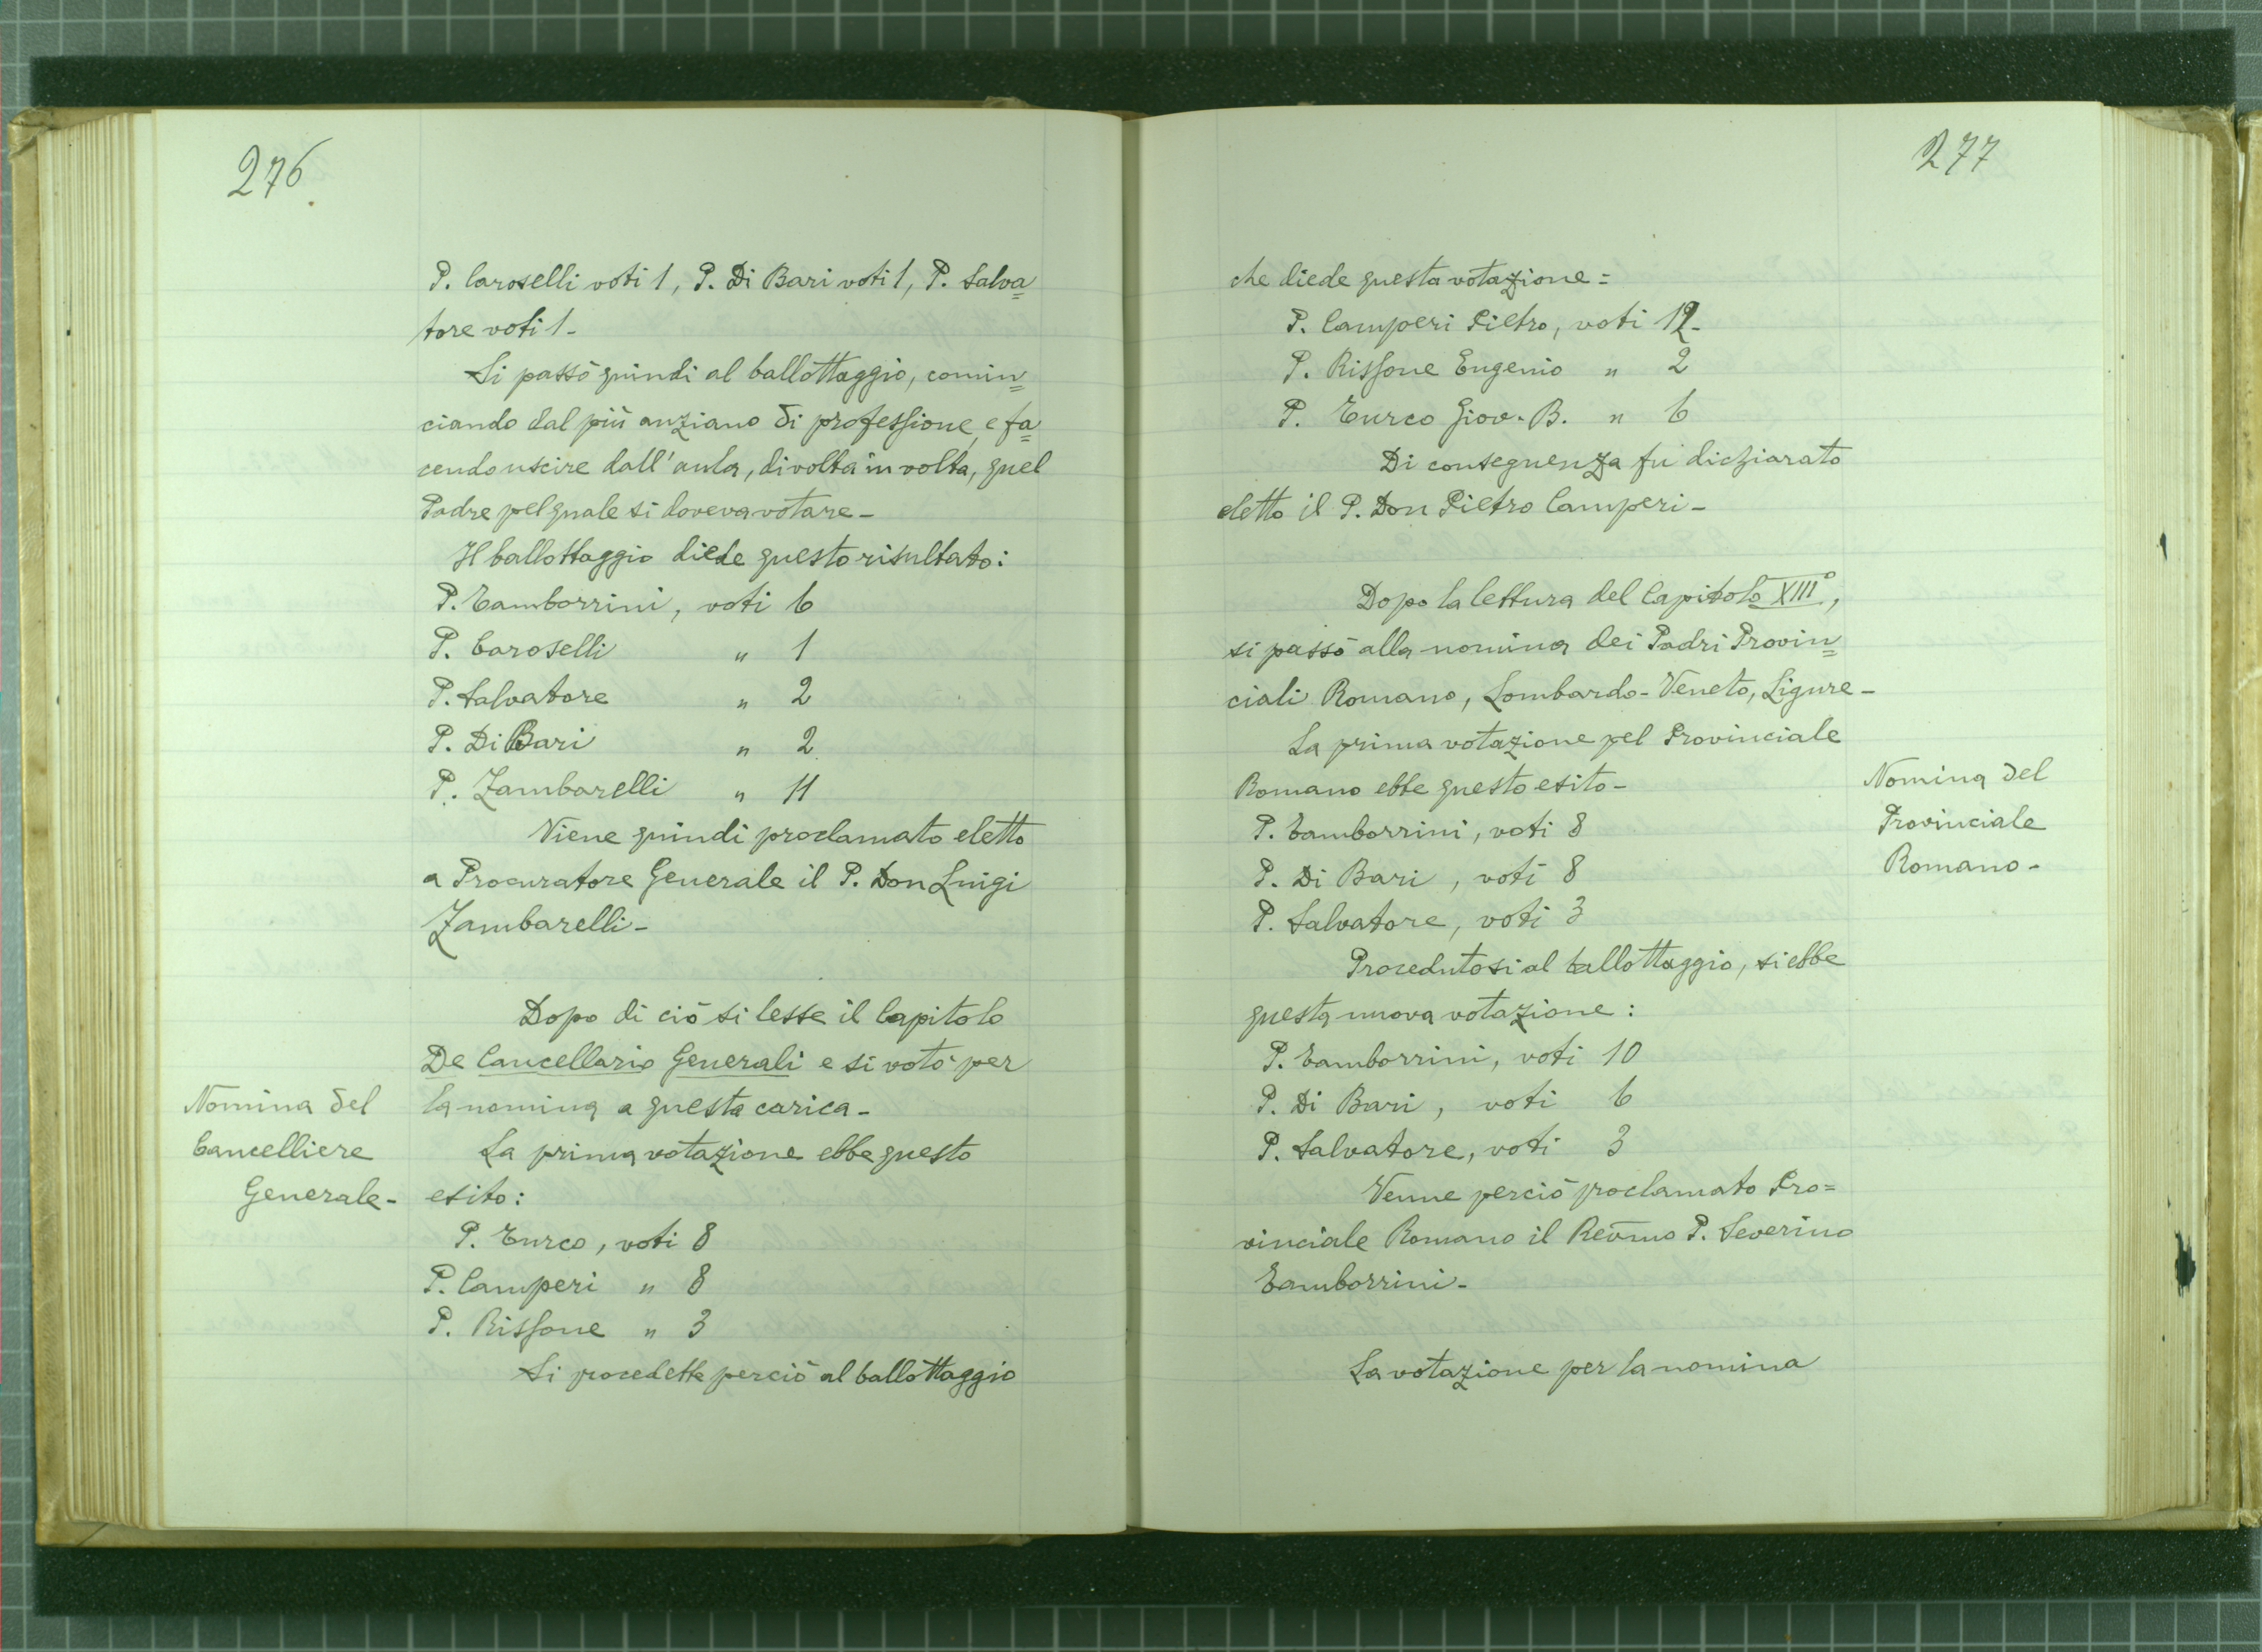 276
P. Caroselli voti 1, P. Di Bari voti 1, P. Salva=
tore voti 1-
Si passò quindi al ballottaggio, comin=
ciando dal più anziano di professione, e fa=
cendo uscire dall'aula, di volta in volta, quel
Padre pel quale si doveva votare-
Il ballottaggio diede questo risultato:
P. Tamborrini, voti 6
P. Caroselli " 1
P. Salvatore " 2
P. Di Bari " 2
P. Zambarelli " 11
Viene quindi proclamato eletto
a Procuratore Generale il P. Don Luigi
Zambarelli-
Dopo di ciò si lesse il Capitolo
De Cancellario Generali e si votò per
la nomina a questa carica-
Nomina del
Cancelliere
Generale-
La prima votazione ebbe questo
esito:
P. Turco, voti 8
P. Camperi " 8
P. Rissone " 3
Si procedette perciò al ballottaggio
277
che diede questa votazione=
P. Camperi Pietro, voti 12-
P. Rissone Eugenio " 2
P. Turco Giov. B. " 6
Di conseguenza fu dichiarato
eletto il P. Don Pietro Camperi-
Dopo la lettura del Capitolo XIII°,
si passò alla nomina dei Padri Provin=
ciali Romano, Lombardo-Veneto, Ligure-
La prima votazione pel Provinciale
Romano ebbe questo esito-
Nomina del
Provinciale
Romano-
P. Tamborrini, voti 8
P. Di Bari, voti 8
P. Salvatore, voti 3
Procedutosi al ballottaggio, si ebbe
questa nuova votazione:
P. Tamborrini, voti 10
P. Di Bari, voti 6
P. Salvatore, voti 3
Venne perciò proclamato Pro=
vinciale Romano il Rev̄mo P. Severino
Tamborrini-
La votazione per la nomina